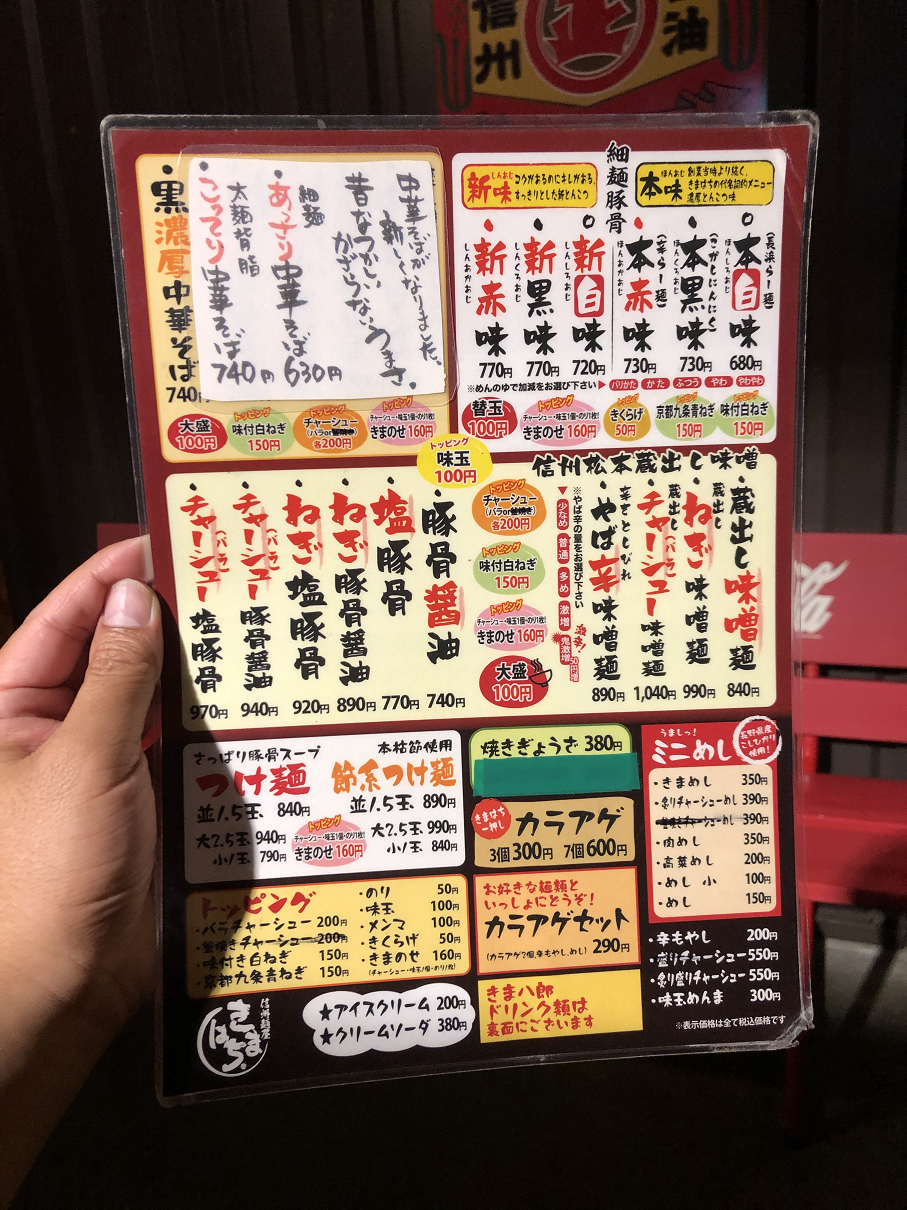 信州
油
細麺豚骨
新味
しんあじ
コクがあるのにキレがある、
すっきりとした新とんこつ
本味
ほんあじ
創業当時より続く、
きまはちの代名詞的メニュー
濃厚とんこつ味
(長浜らー麺)
本白味
ほんしろあじ
680円
(こがしにんにく)
本黒味
ほんくろあじ
730円
(辛らー麺)
本赤味
ほんあかあじ
730円
新白味
しんしろあじ
720円
新黒味
しんくろあじ
770円
新赤味
しんあかあじ
770円
※めんのゆで加減をお選び下さい▶ バリかた かた ふつう やわ やわやわ
替玉
100円
トッピング
チャーシュー・味玉1個・のり1枚!
きまのせ 160円
トッピング
きくらげ
50円
トッピング
京都九条青ねぎ
150円
トッピング
味付白ねぎ
150円
中華そばが
新しくなりました。
昔なつかしい
かざらないうまさ。
細麺
あっさり中華そば
630円
太麺背脂
こってり中華そば
740円
黒濃厚中華そば
740円
大盛
100円
トッピング
味付白ねぎ
150円
トッピング
チャーシュー
(バラor釜焼き)
各200円
トッピング
チャーシュー・味玉1個・のり1枚!
きまのせ 160円
トッピング
味玉
100円
信州松本蔵出し味噌
蔵出し味噌麺
840円
蔵出し
ねぎ味噌麺
990円
蔵出し
チャーシュー(バラ)味噌麺
1,040円
辛さとしびれ
やば辛味噌麺
890円
※やば辛の量をお選び下さい
▼少なめ 普通 多め 激増 鬼激増 50円増
激辛!
トッピング
チャーシュー
(バラor釜焼き)
各200円
トッピング
味付白ねぎ
150円
トッピング
チャーシュー・味玉1個・のり1枚!
きまのせ 160円
大盛
100円
豚骨醤油
740円
塩豚骨
770円
ねぎ豚骨醤油
890円
ねぎ塩豚骨
920円
チャーシュー(バラ)豚骨醤油
940円
チャーシュー(バラ)塩豚骨
970円
さっぱり豚骨スープ
つけ麺
並1.5玉 840円
大2.5玉 940円
小1玉 790円
本枯節使用
節系つけ麺
並1.5玉 890円
大2.5玉 990円
小1玉 840円
トッピング
チャーシュー・味玉1個・のり1枚!
きまのせ 160円
焼きぎょうざ 380円
きまはち
一押し
カラアゲ
3個300円 7個600円
お好きな麺類と
いっしょにどうぞ!
カラアゲセット
(カラアゲ2個,辛もやし,めし) 290円
うましっ!
ミニめし
長野県産
こしひかり
使用!
・きまめし 350円
・炙りチャーシューめし 390円
・釜焼きチャーシューめし 390円
・肉めし 350円
・高菜めし 200円
・めし 小 100円
・めし 150円
・辛もやし 200円
・盛りチャーシュー 550円
・炙り盛りチャーシュー 550円
・味玉めんま 300円
トッピング
・バラチャーシュー 200円
・釜焼きチャーシュー 200円
・味付き白ねぎ 150円
・京都九条青ねぎ 150円
・のり 50円
・味玉 100円
・メンマ 100円
・きくらげ 50円
・きまのせ 160円
(チャーシュー・味玉1個・のり1枚)
信州麺屋
きまはち
★アイスクリーム 200円
★クリームソーダ 380円
きま八郎
ドリンク類は
裏面にございます
※表示価格は全て税込価格です